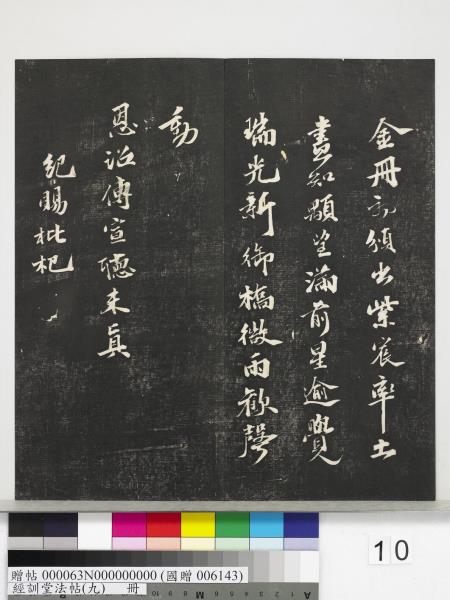 金冊初頒出紫宸率土
盡知顒望滿前星逾覺
瑞光新御橋微雨歡聲
動
恩詔傳宣聽未真
紀賜枇杷
10
贈帖 000063N000000000 (國贈 006143)
經訓堂法帖(九) 冊